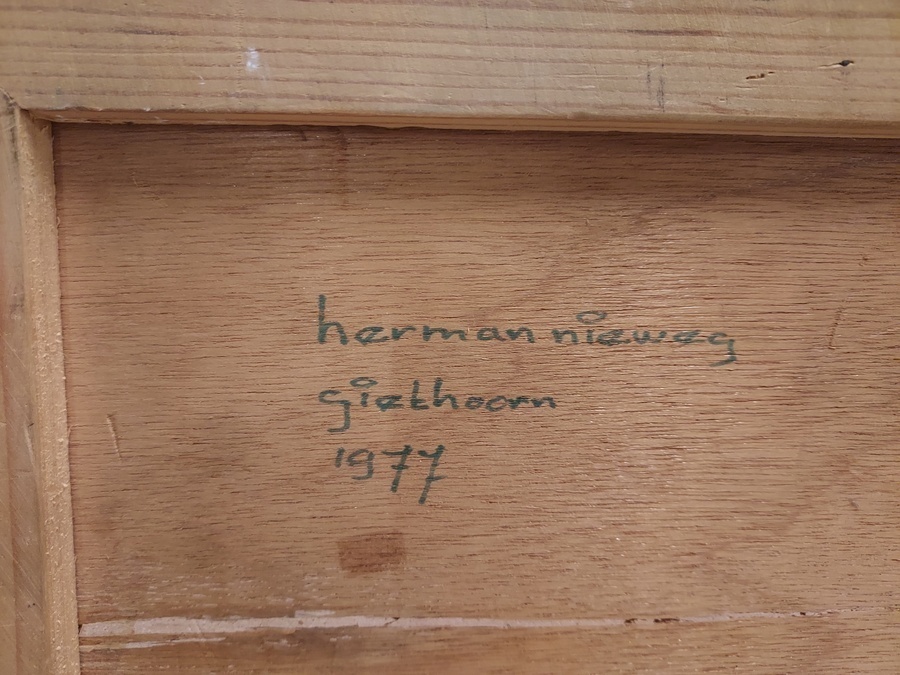 herman nieweg
giethoorn
1977